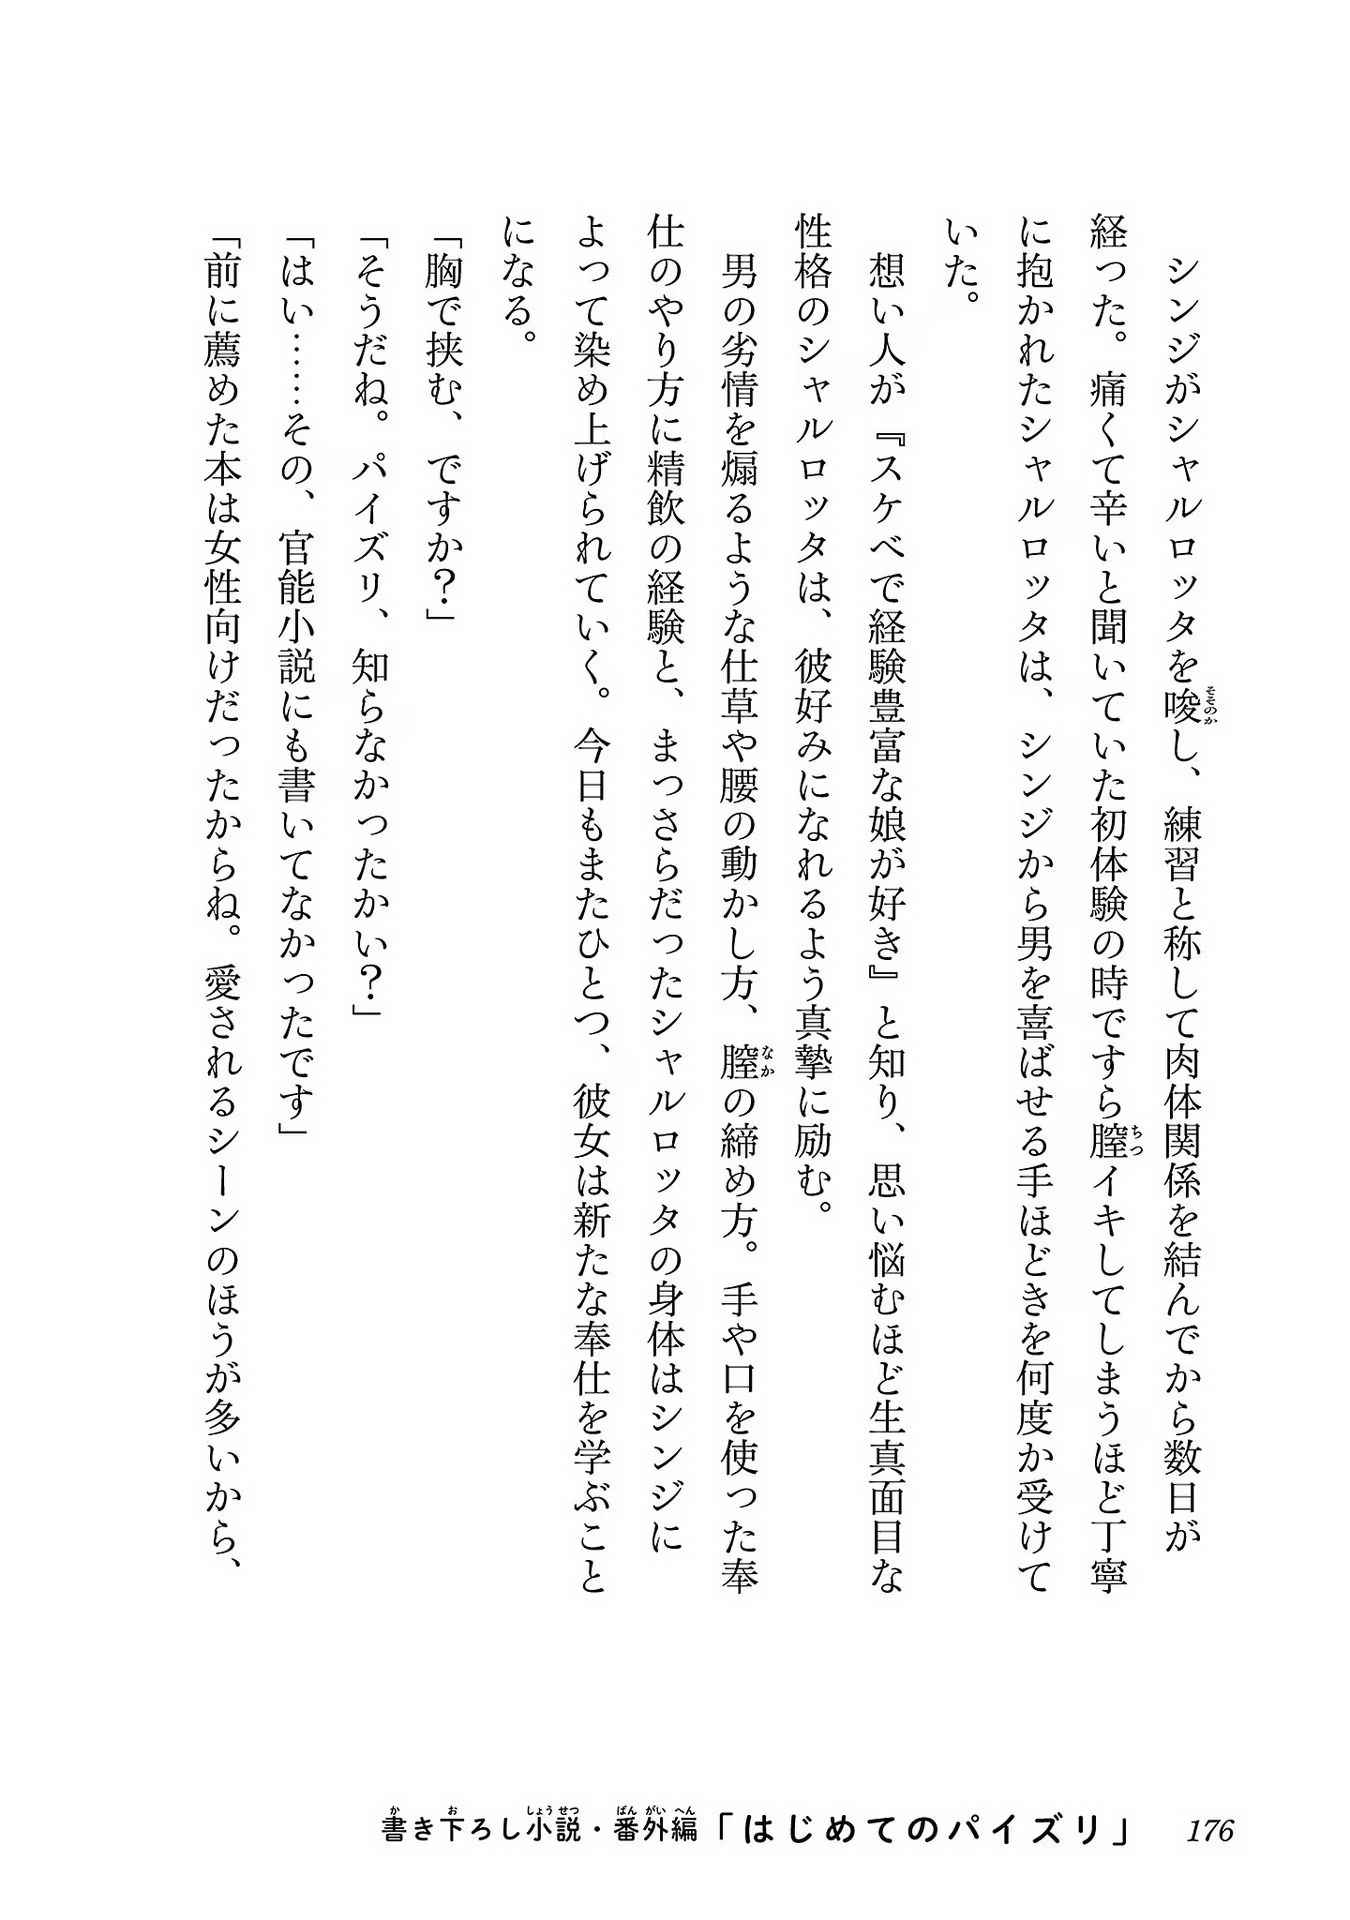 シンジがシャルロッタを唆し、練習と称して肉体関係を結んでから数日が
経った。痛くて辛いと聞いていた初体験の時ですら膣イキしてしまうほど丁寧
に抱かれたシャルロッタは、シンジから男を喜ばせる手ほどきを何度か受けて
いた。
想い人が『スケベで経験豊富な娘が好き』と知り、思い悩むほど生真面目な
性格のシャルロッタは、彼好みになれるよう真摯に励む。
男の劣情を煽るような仕草や腰の動かし方、膣の締め方。手や口を使った奉
仕のやり方に精飲の経験と、まっさらだったシャルロッタの身体はシンジに
よって染め上げられていく。今日もまたひとつ、彼女は新たな奉仕を学ぶこと
になる。
「胸で挟む、ですか？」
「そうだね。パイズリ、知らなかったかい？」
「はい……その、官能小説にも書いてなかったです」
「前に薦めた本は女性向けだったからね。愛されるシーンのほうが多いから、
書き下ろし小説・番外編「はじめてのパイズリ」 176